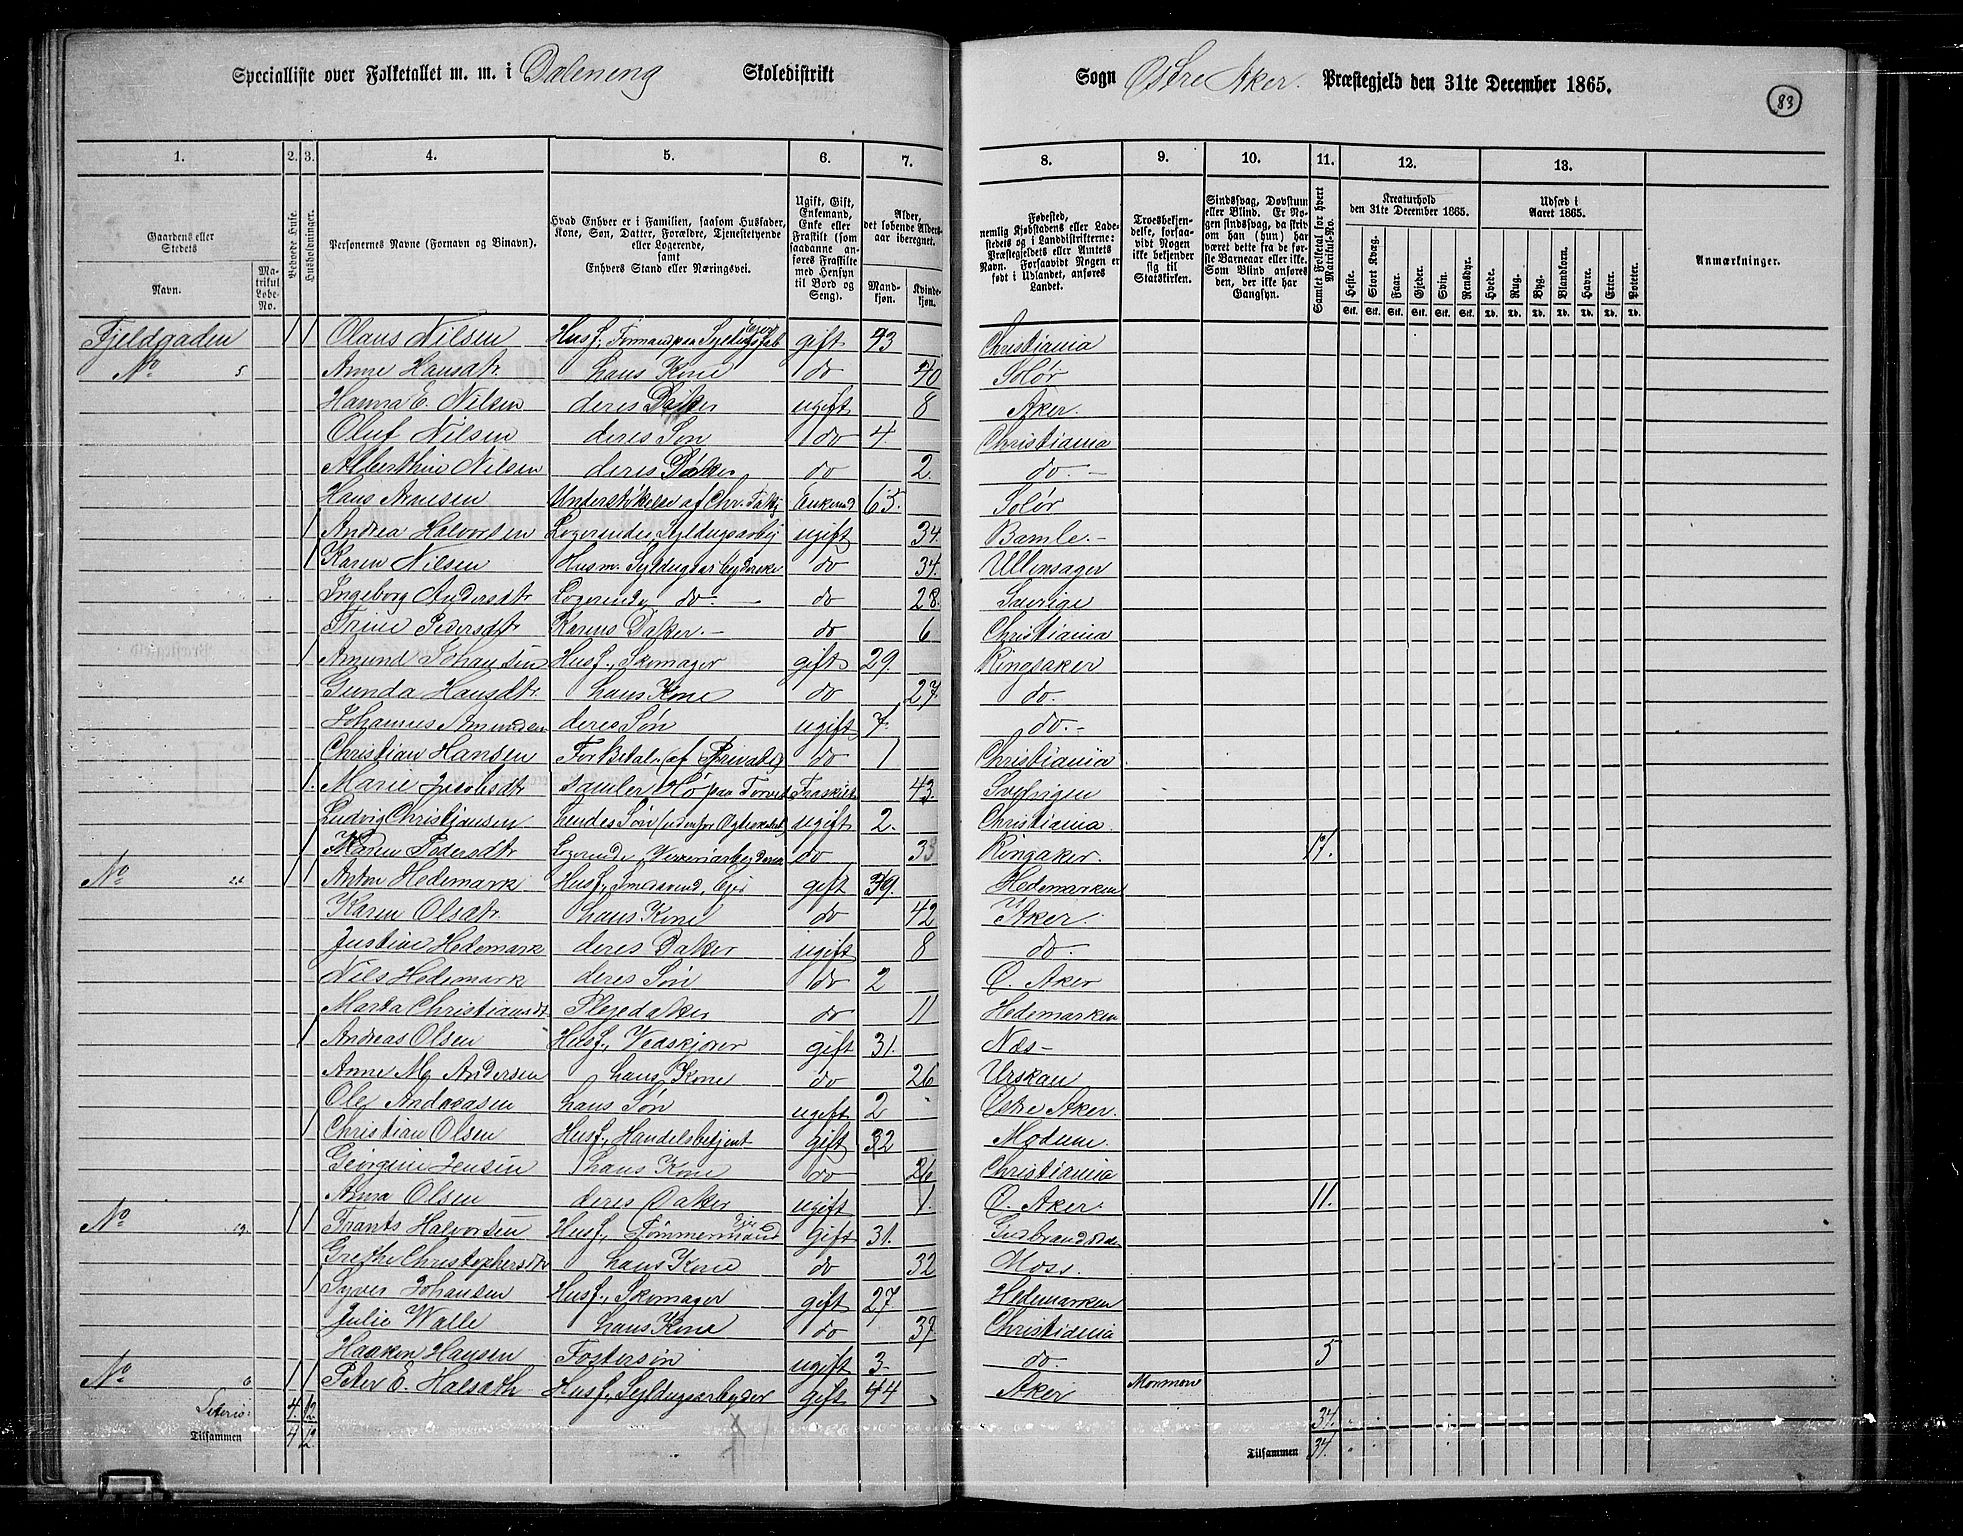 Specialliste over Folketallet m. m. i Daleneng Skoledistrikt
Sogn Østre Aker. Præstegjeld den 31te December 1865.
83
1. 2. 3. 4. 5. 6. 7. 8. 9. 10. 11. 12. 13.
Gaardens eller Stedets
Navn.
Matrikul Løbe-No.
Beboede Huse.
Husholdninger.
Personernes Navne (Fornavn og Binavn).
Hvad Enhver er i Familien, saasom Husfader, Kone, Søn, Datter, Forældre, Tjenestetyende eller Logerende, samt Enhvers Stand eller Næringsvei.
Ugift, Gift, Enkemand, Enke eller Fraskilt (som saadanne anføres Fraskilte med Hensyn til Bord og Seng).
Alder, det løbende Aldersaar iberegnet.
Mandkjøn. Kvindekjøn.
Fødested, nemlig Kjøbstadens eller Ladestedets og i Landdistrikterne: Præstegjeldets eller Amtets Navn. Forsaavidt Nogen er født i Udlandet, anføres Landet.
Troesbekjendelse, forsaavidt Nogen ikke bekjender sig til Statskirken.
Sindssvag, Døvstum eller Blind. Er Nogen sindssvag, da skriv om han (hun) har været dette fra de første Barneaar eller ikke. Som Blind anføres den, der ikke har Gangsyn.
Samlet Folketal for hvert Matrikul-No.
Kreaturhold den 31te December 1865.
Heste. Stort Kvæg. Faar. Gjeder. Svin. Rensdyr.
Stk. Stk. Stk. Stk. Stk. Stk.
Udsæd i Aaret 1865.
Hvede. Rug. Byg. Blandkorn. Havre. Erter. Poteter.
Td. Td. Td. Td. Td. Td. Td.
Anmærkninger.
Fjeldgaden 1 1 Olaus Nilsen Husf., Formand paa Seyldugsfab Eger gift 43 Christiania
No 5 Anne Hansdtr. hans Kone do 40 Solør
Hanna E. Nilsen deres Datter ugift 8 Aker.
Oluf Nilsen deres Søn do 4. Christiania
Alberthine Nilsen deres Datter do 2. do.
Hans Arnesen Understøttelse af Chr. Enkemd 65. Solør
1 Andrea Halvorsen Logerende, Seyldugsarb ugift 34. Bamle.
1 Karen Nilsen Husm. Seyldugsarbeiderske do 34. Ullensager
Ingeborg Andersdtr Logerende do. do 28. Sverige
Trine Pedersdtr Karens Datter. do 6 Christiania
1 Amund Johansen Husf., Skomager gift 29. Ringsaker
Gunda Hansdtr. hans Kone do 27. do.
Johannes Amundsen deres Søn ugift 7. do.
Christian Hansen For Betal. (af Private) do 1 Christiania
1. Marie Jacobsdtr samler Hø paa Torvet Fraskilt 43. Sverigen
Ludvig Christiansen hendes Søn (udenfor Ægteskab) ugift 2. Christiania.
1 Karen Pedersdtr Logerende Væveriarbeiderske do 33 Ringaker. 17.
No 22 1 1 Anton Hedemark Husf., Smedsvend, Eger gift 39. Hedemarken
Karen Olsdtr. hans Kone do 42 Aker.
Justine Hedemark deres Datter ugift 8 do.
Nils Hedemark deres Søn do 2 Ø. Aker
Marta Christiansdt. Plejedatter do 11 Hedemarken
1 Andreas Olsen Husf., Vedskjører gift 31. Næs
Anne M. Andersen hans Kone do 26 Urskau
Ole Andreasen hans Søn ugift 2 Østre Aker.
1 Christian Olsen Husf., Handelsbetjent gift 32 Modum.
Georgine Jensen hans Kone do 26 Christiania
Anna Olsen deres Datter ugift 1. Ø. Aker. 11.
No 19 1 1 Frants Halvorsen Husf., Tømmermand Eger gift 31. Gudbrandsdal
Grethe Christophersdtr hans Kone do 32 Moss.
1 Syver Johansen Husf., Skomager gift 27. Hedemarken
Julie Walle hans Kone do 37 Christiania
Haaken Hansen Fostersøn ugift 3 do. 5
No 6 1 1 Peter E. Halseth Husf., Seyldugsarbeyder gift 44 Aker Mormon
4. 12 34.
Tilsammen 4 12. Tilsammen 34.